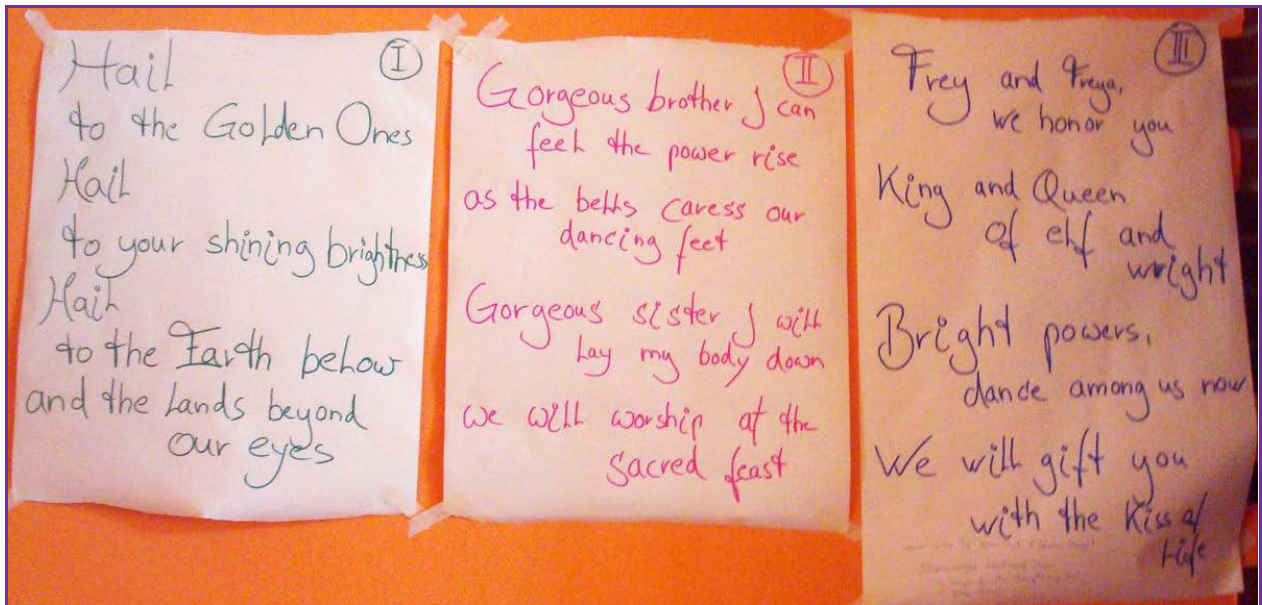 I
Hail
to the Golden Ones
Hail
to your shining brightness
Hail
to the Earth below
and the Lands beyond
our eyes
II
Gorgeous brother I can
feel the power rise
as the bells caress our
dancing feet
Gorgeous sister I will
Lay my body down
we will worship at the
Sacred feast
III
Frey and Freya,
we honor you
King and Queen
Of elf and
wright
Bright powers,
dance among us now
We will gift you
with the Kiss of
Life